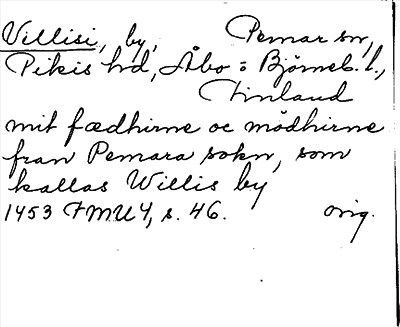 Villisi, by, Pemar sn,
Pikis hd, Åbo o Björneb. l.,
Finland
mit fædhirne oc mödhirne
fran Pemara sokn, som
kallas Willis by
1453 FMU 4, s. 46. orig.